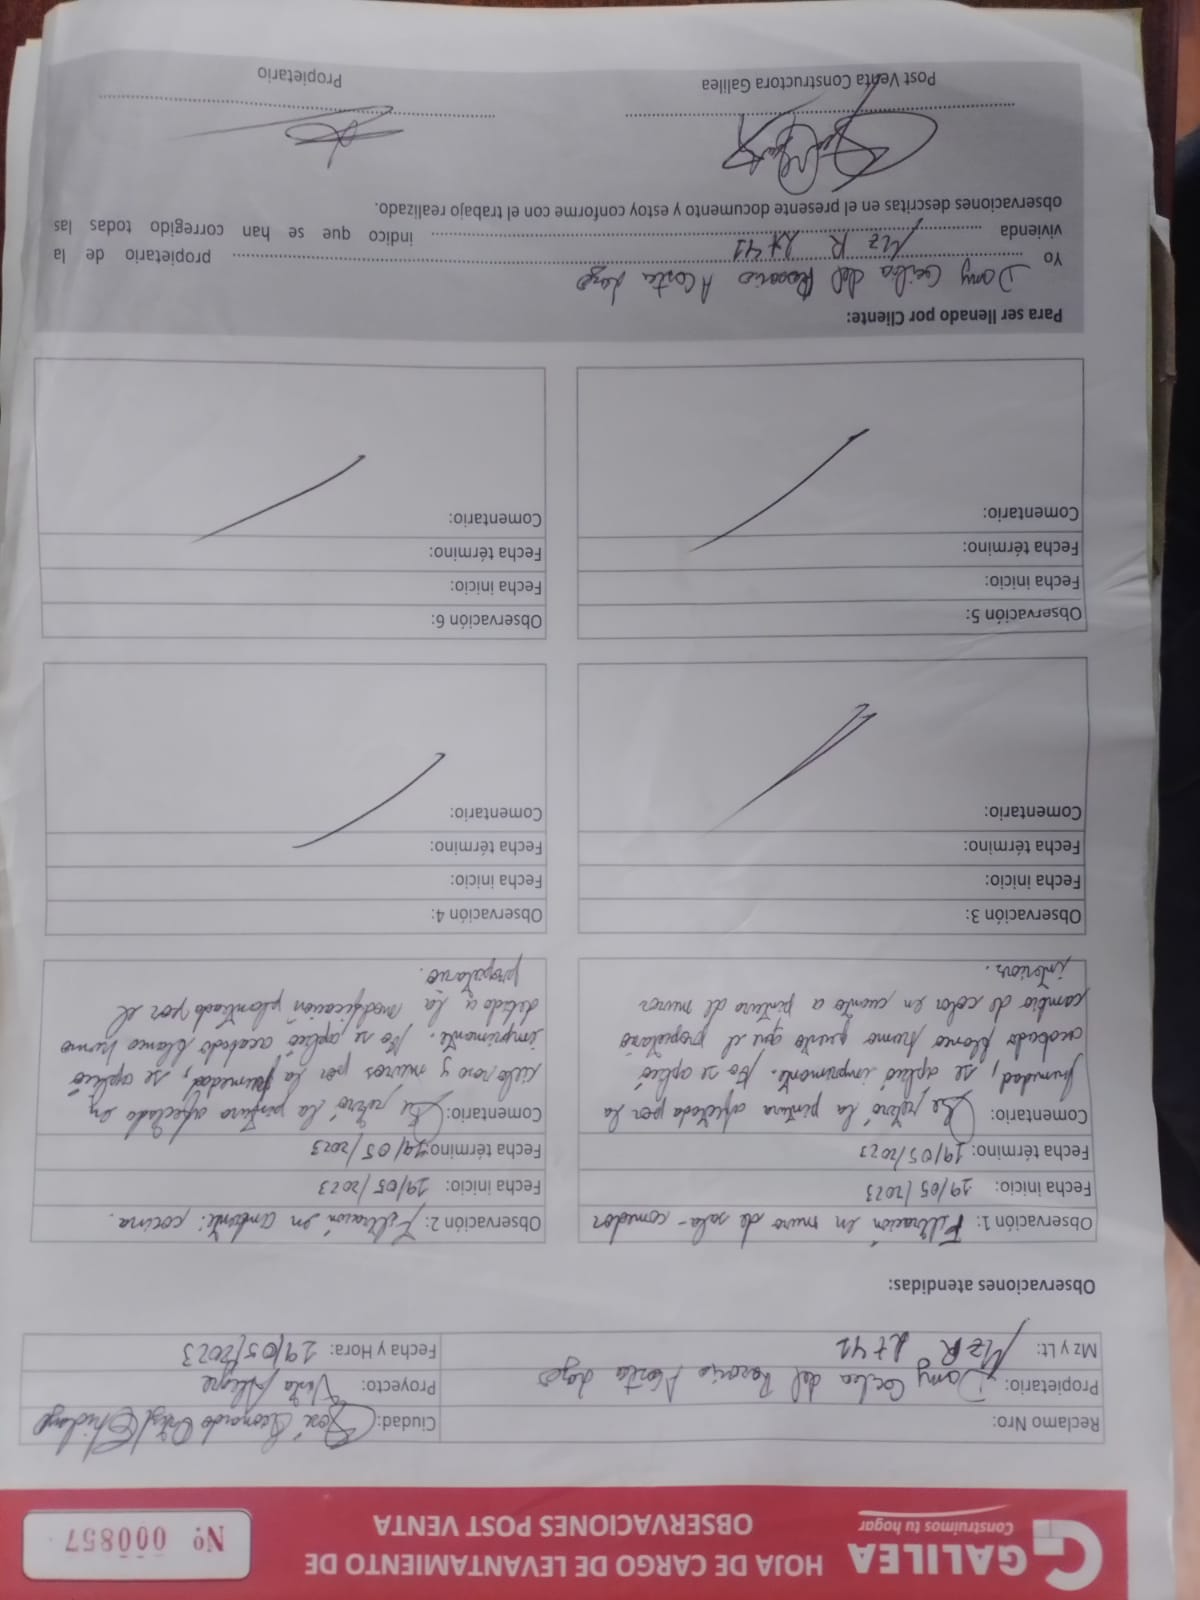 GALILEA
Construimos tu hogar
HOJA DE CARGO DE LEVANTAMIENTO DE
OBSERVACIONES POST VENTA
Nº 000857
Reclamo Nro:
Ciudad: José Leonardo Ortiz / Chiclayo
Propietario: Damy Cecilia del Rosario Acosta
Proyecto: Venta Alegre
Mz y Lt: Mz R Lt 41
Fecha y Hora: 29/05/2023
Observaciones atendidas:
Observación 1: Filtración en muro de sala-comedor
Fecha inicio: 29/05/2023
Fecha término: 29/05/2023
Comentario: Se retiró la pintura afectada por la
humedad, se aplicó imprimante. No se aplicó
acabado blanco humo puesto que el propietario
cambio de color en cuanto a pintura de muros
interior.
Observación 2: Filtración en ambiente: cocina.
Fecha inicio: 29/05/2023
Fecha término: 29/05/2023
Comentario: Se retiró la pintura afectada en
cielo raso y muros por la humedad, se aplicó
imprimante. No se aplicó acabado blanco humo
debido a la modificación planteado por el
propietario.
Observación 3:
Fecha inicio:
Fecha término:
Comentario:
Observación 4:
Fecha inicio:
Fecha término:
Comentario:
Observación 5:
Fecha inicio:
Fecha término:
Comentario:
Observación 6:
Fecha inicio:
Fecha término:
Comentario:
Para ser llenado por Cliente:
Yo Damy Cecilia del Rosario Acosta propietario de la
vivienda Mz R Lt 41 indico que se han corregido todas las
observaciones descritas en el presente documento y estoy conforme con el trabajo realizado.
Post Venta Constructora Galilea
Propietario